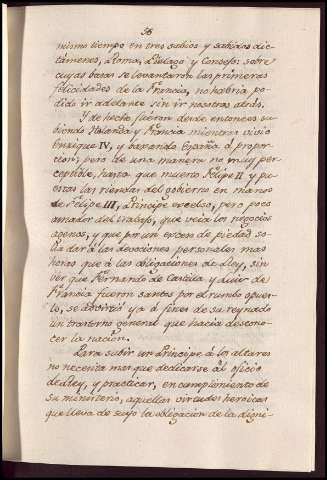 56
mismo tiempo en tres sabios y sabidos dic-
támenes, Roma, Piélago y Consejos sobre
cuyas basas se levantaron las primeras
felicidades de la Francia, no habria po-
dido ir adelante sin ir nosotros atrás.
Y de hecho fueron desde entonces su-
biendo Holanda y Francia mientras vivió
Enrique IV, y baxando España á propor-
cion; pero de una manera no muy per-
ceptible, hasta que muerto Felipe II y pu-
estas las riendas del gobierno en manos
de Felipe III, Principe excelso, pero poco
amador del trabajo, que veía los negocios
agenos, y que por un exceso de piedad so-
lía dar á las devociones personales mas
horas que á las obligaciones de Rey, sin
ver que Fernando de Castilla y Luis de
Francia fueron santos por el rumbo opues-
to, se advirtió ya á fines de su reynado
un trastorno general que hacia descono-
cer la nacion.
Para subir un Principe á los altares
no necesita mas que dedicarse al oficio
de Rey, y practicar, en cumplimiento de
su ministerio, aquellas virtudes heroicas
que lleva de suyo la obligacion de la digni-